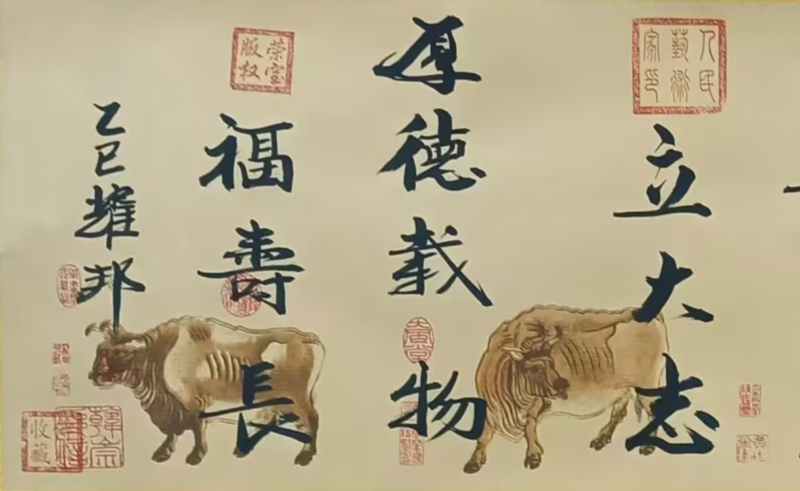 人民藝術家印
立大志
厚德载物
荣宝版权
福壽長
乙巳耀邦
收藏